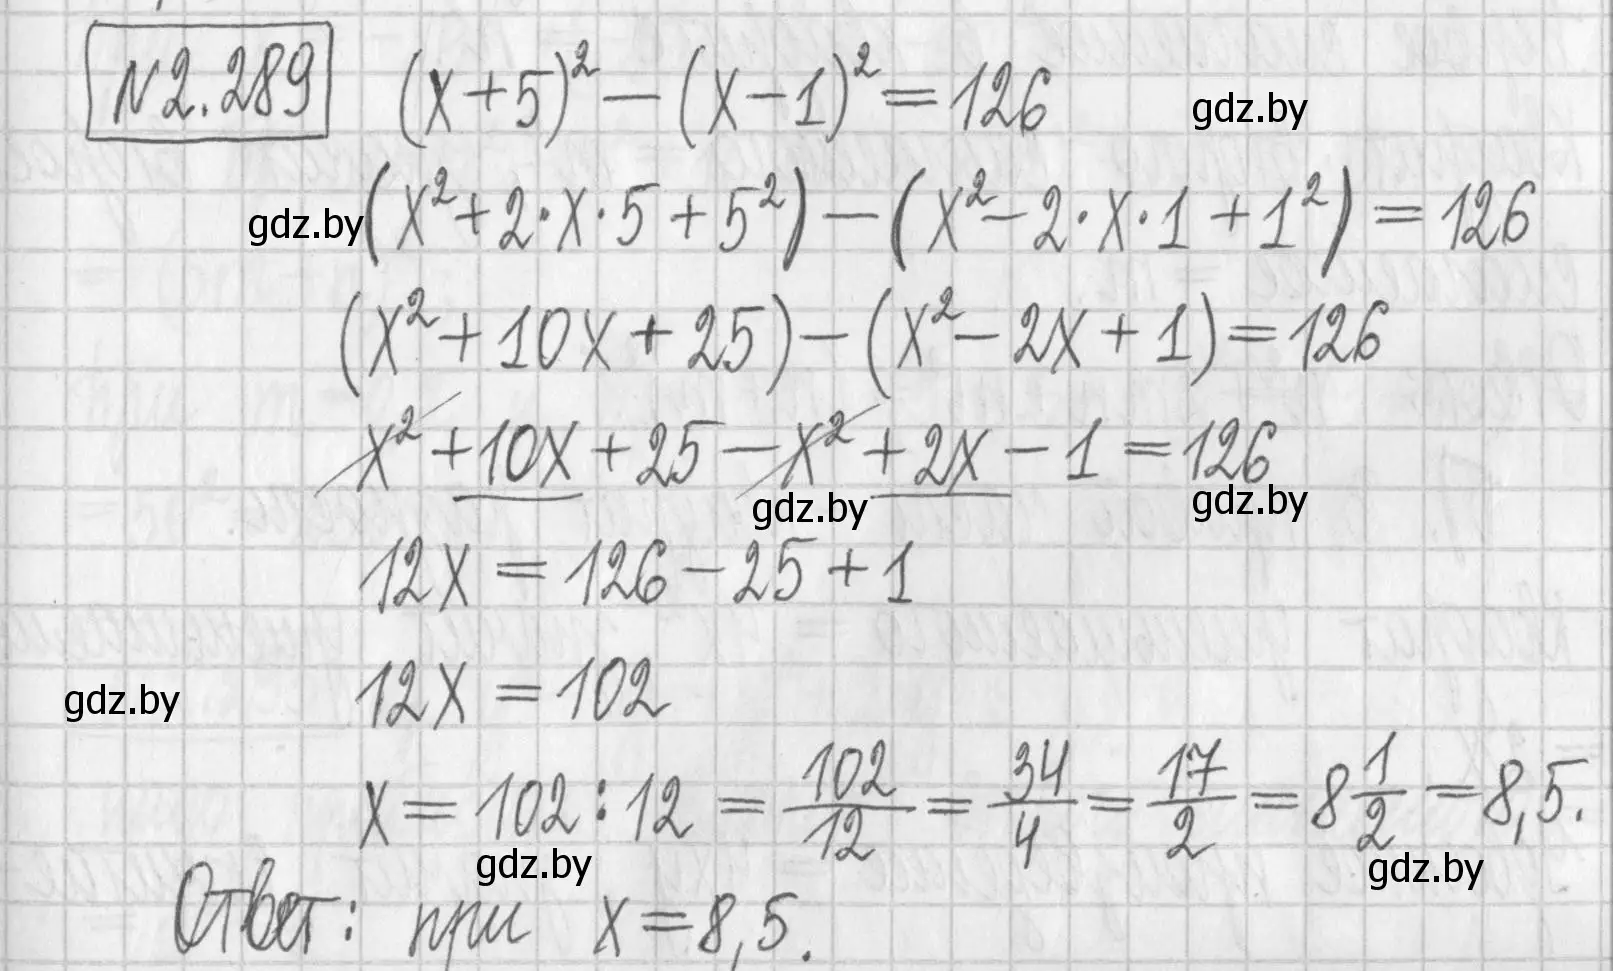 N2.289 (x+5)² − (x−1)² = 126 gdz.by
gdz.by (x²+2·x·5+5²) − (x²−2·x·1+1²) = 126
(x²+10x+25) − (x²−2x+1) = 126
x²+10x+25−x²+2x−1 = 126
gdz.by gdz.by
12x = 126−25+1
gdz.by 12x = 102
x = 102:12 = 102/12 = 34/4 = 17/2 = 8 1/2 = 8,5.
gdz.by gdz.by
Ответ: при x = 8,5.